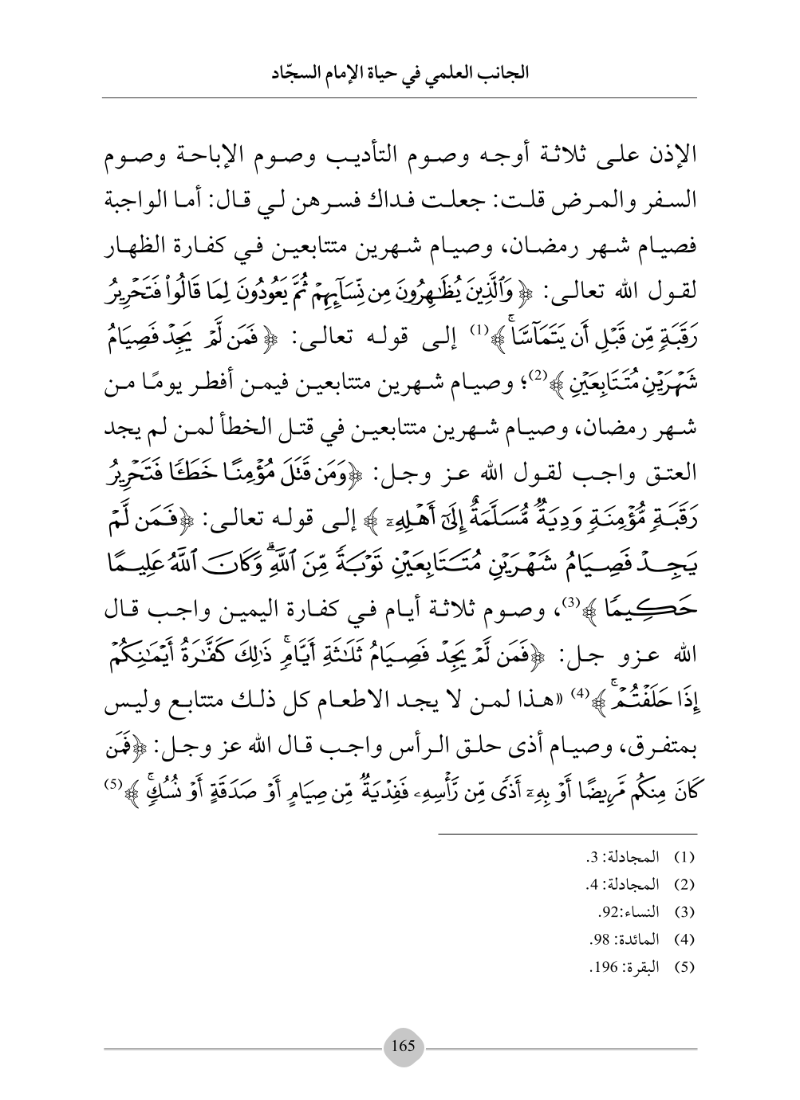 الجانب العلمي في حياة الإمام السجّاد
الإذن على ثلاثة أوجه وصوم التأديب وصوم الإباحة وصوم
السفر والمرض قلت: جعلت فداك فسرهن لي قال: أما الواجبة
فصيام شهر رمضان، وصيام شهرين متتابعين في كفارة الظهار
لقول الله تعالى: ﴿ وَٱلَّذِينَ يُظَٰهِرُونَ مِن نِّسَآئِهِمۡ ثُمَّ يَعُودُونَ لِمَا قَالُواْ فَتَحۡرِيرُ
رَقَبَةٖ مِّن قَبۡلِ أَن يَتَمَآسَّاۚ ﴾(1) إلى قوله تعالى: ﴿ فَمَن لَّمۡ يَجِدۡ فَصِيَامُ
شَهۡرَيۡنِ مُتَتَابِعَيۡنِ ﴾(2)؛ وصيام شهرين متتابعين فيمن أفطر يومًا من
شهر رمضان، وصيام شهرين متتابعين في قتل الخطأ لمن لم يجد
العتق واجب لقول الله عز وجل: ﴿وَمَن قَتَلَ مُؤۡمِنًا خَطَـٔٗا فَتَحۡرِيرُ
رَقَبَةٖ مُّؤۡمِنَةٖ وَدِيَةٞ مُّسَلَّمَةٌ إِلَىٰٓ أَهۡلِهِۦٓ ﴾ إلى قوله تعالى: ﴿فَمَن لَّمۡ
يَجِدۡ فَصِيَامُ شَهۡرَيۡنِ مُتَتَابِعَيۡنِ تَوۡبَةٗ مِّنَ ٱللَّهِۗ وَكَانَ ٱللَّهُ عَلِيمًا
حَكِيمٗا ﴾(3)، وصوم ثلاثة أيام في كفارة اليمين واجب قال
الله عزو جل: ﴿فَمَن لَّمۡ يَجِدۡ فَصِيَامُ ثَلَٰثَةِ أَيَّامٖۚ ذَٰلِكَ كَفَّٰرَةُ أَيۡمَٰنِكُمۡ
إِذَا حَلَفۡتُمۡۚ ﴾(4) «هذا لمن لا يجد الاطعام كل ذلك متتابع وليس
بمتفرق، وصيام أذى حلق الرأس واجب قال الله عز وجل: ﴿فَمَن
كَانَ مِنكُم مَّرِيضًا أَوۡ بِهِۦٓ أَذٗى مِّن رَّأۡسِهِۦ فَفِدۡيَةٞ مِّن صِيَامٍ أَوۡ صَدَقَةٍ أَوۡ نُسُكٖۚ ﴾(5)
(1) المجادلة: 3.
(2) المجادلة: 4.
(3) النساء:92.
(4) المائدة: 98.
(5) البقرة: 196.
165